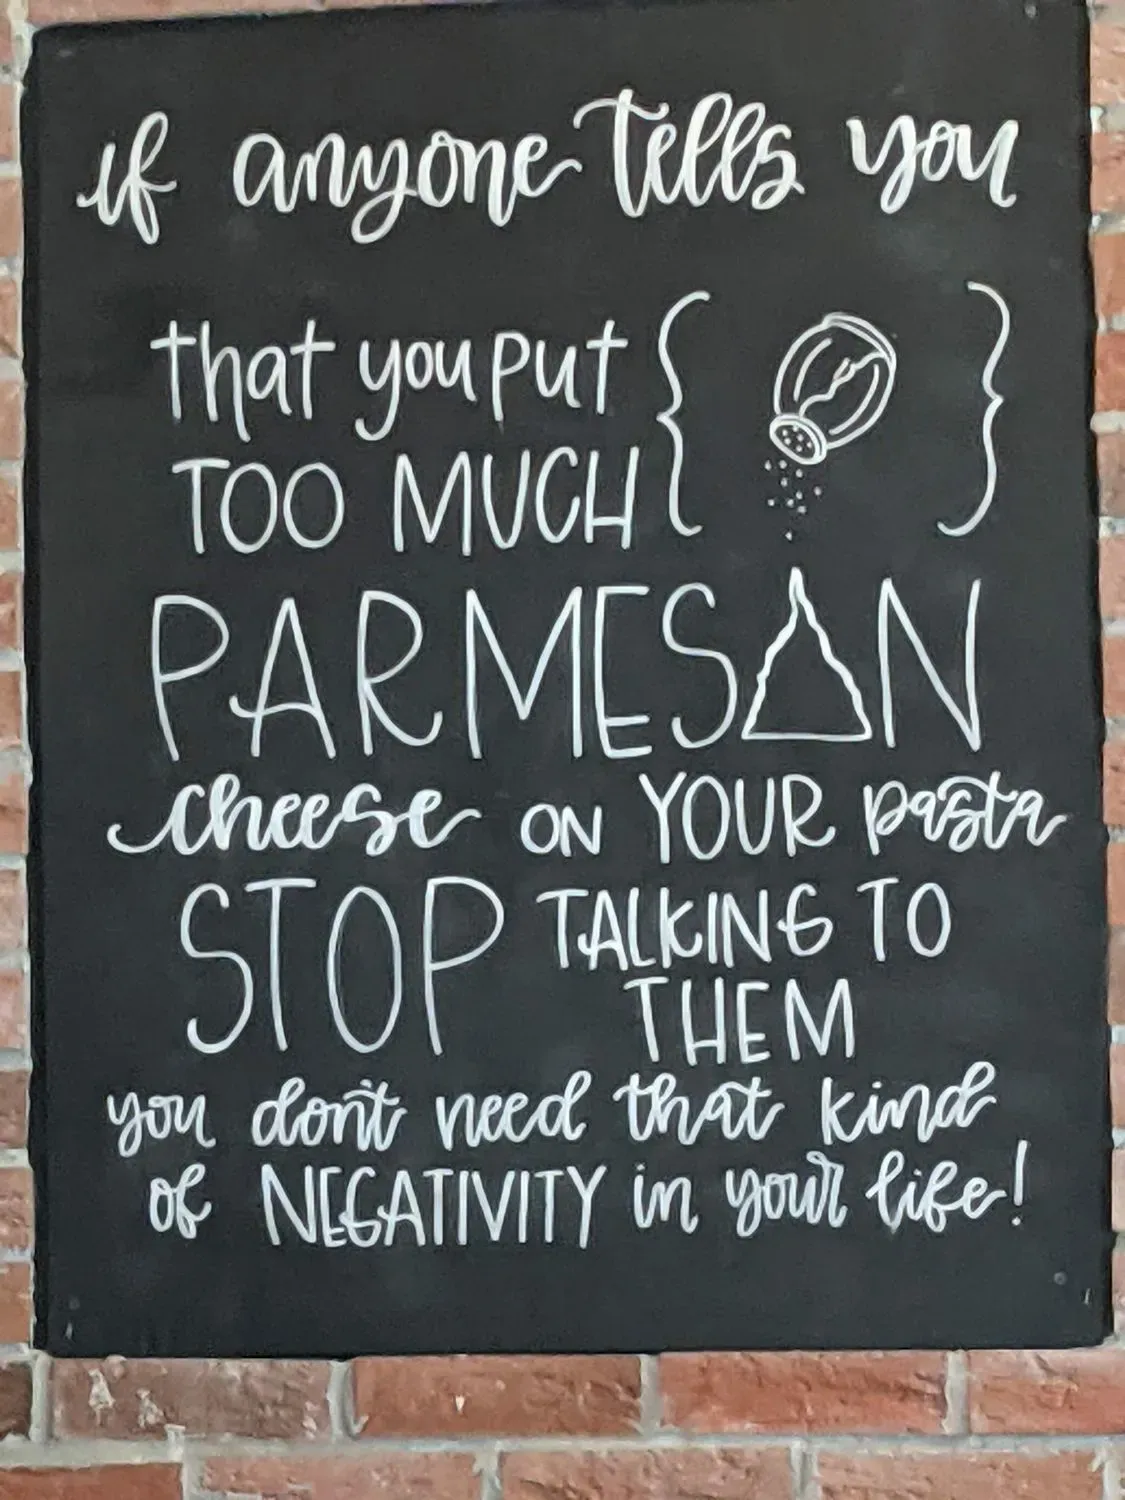 if anyone tells you
that you put
TOO MUCH
PARMESAN
cheese ON YOUR pasta
STOP TALKING TO
THEM
you don't need that kind
of NEGATIVITY in your life!